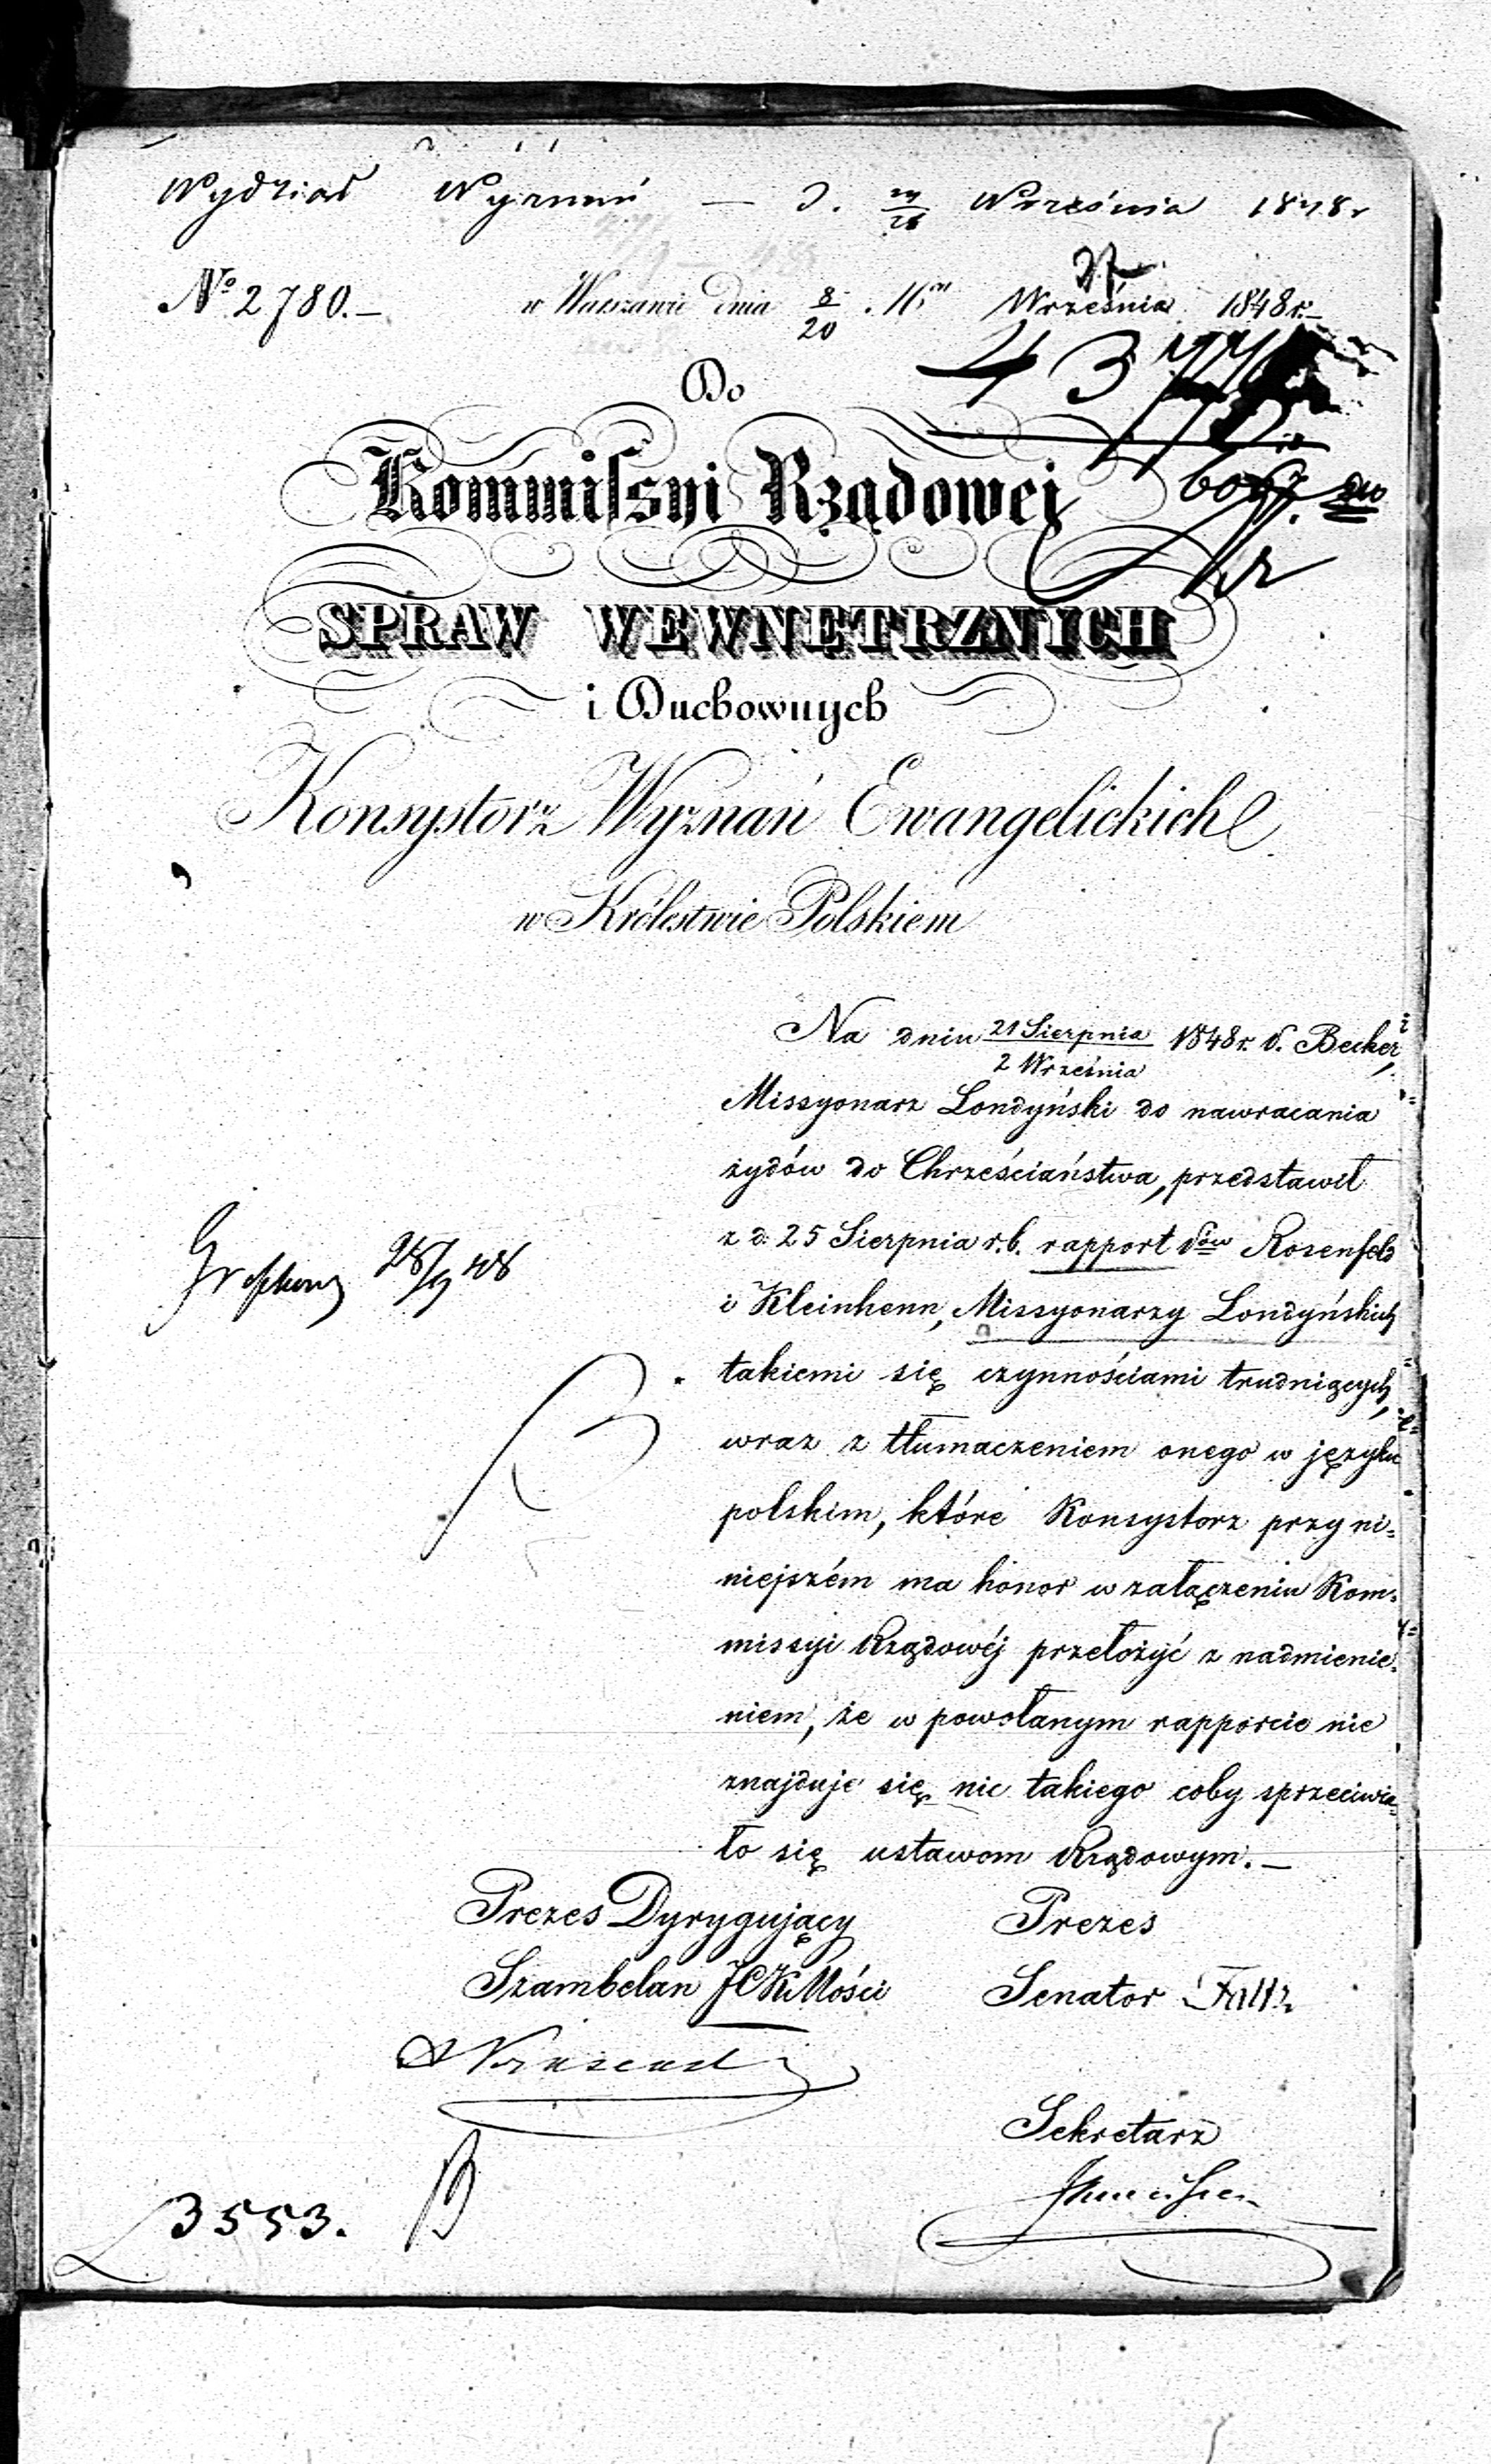 Wydział Wyznań — d. Września 1848 r
№ 2780.—
w Warszawie dnia 8/20 Września 1848 r.—
Do
Kommissyi Rządowej
SPRAW WEWNĘTRZNYCH
i Duchownych
Konsystorz Wyznań Ewangelickich
w Królestwie Polskiem
Na dniu 21 Sierpnia / 2 Września 1848 r. P. Becker,
Missyonarz Londyński do nawracania
żydów do Chrześciaństwa, przedstawił
z d. 25 Sierpnia r.b. rapport Pów Rosenfeld
i Kleinhenn, Missyonarzy Londyńskich
takiemi się czynnościami trudniących,
wraz z tłumaczeniem onego w języku
polskim, które Konsystorz przy ni=
niejszém ma honor w załączeniu Kom=
missyi Rządowéj przełożyć z nadmienie=
niem, że w powołanym rapporcie nie
znajduje się nic takiego coby sprzeciwia=
ło się ustawom Rządowym.—
Prezes Dyrygujący
Szambelan JCKMości
Prezes
Senator
Sekretarz
28/9 48
3553.